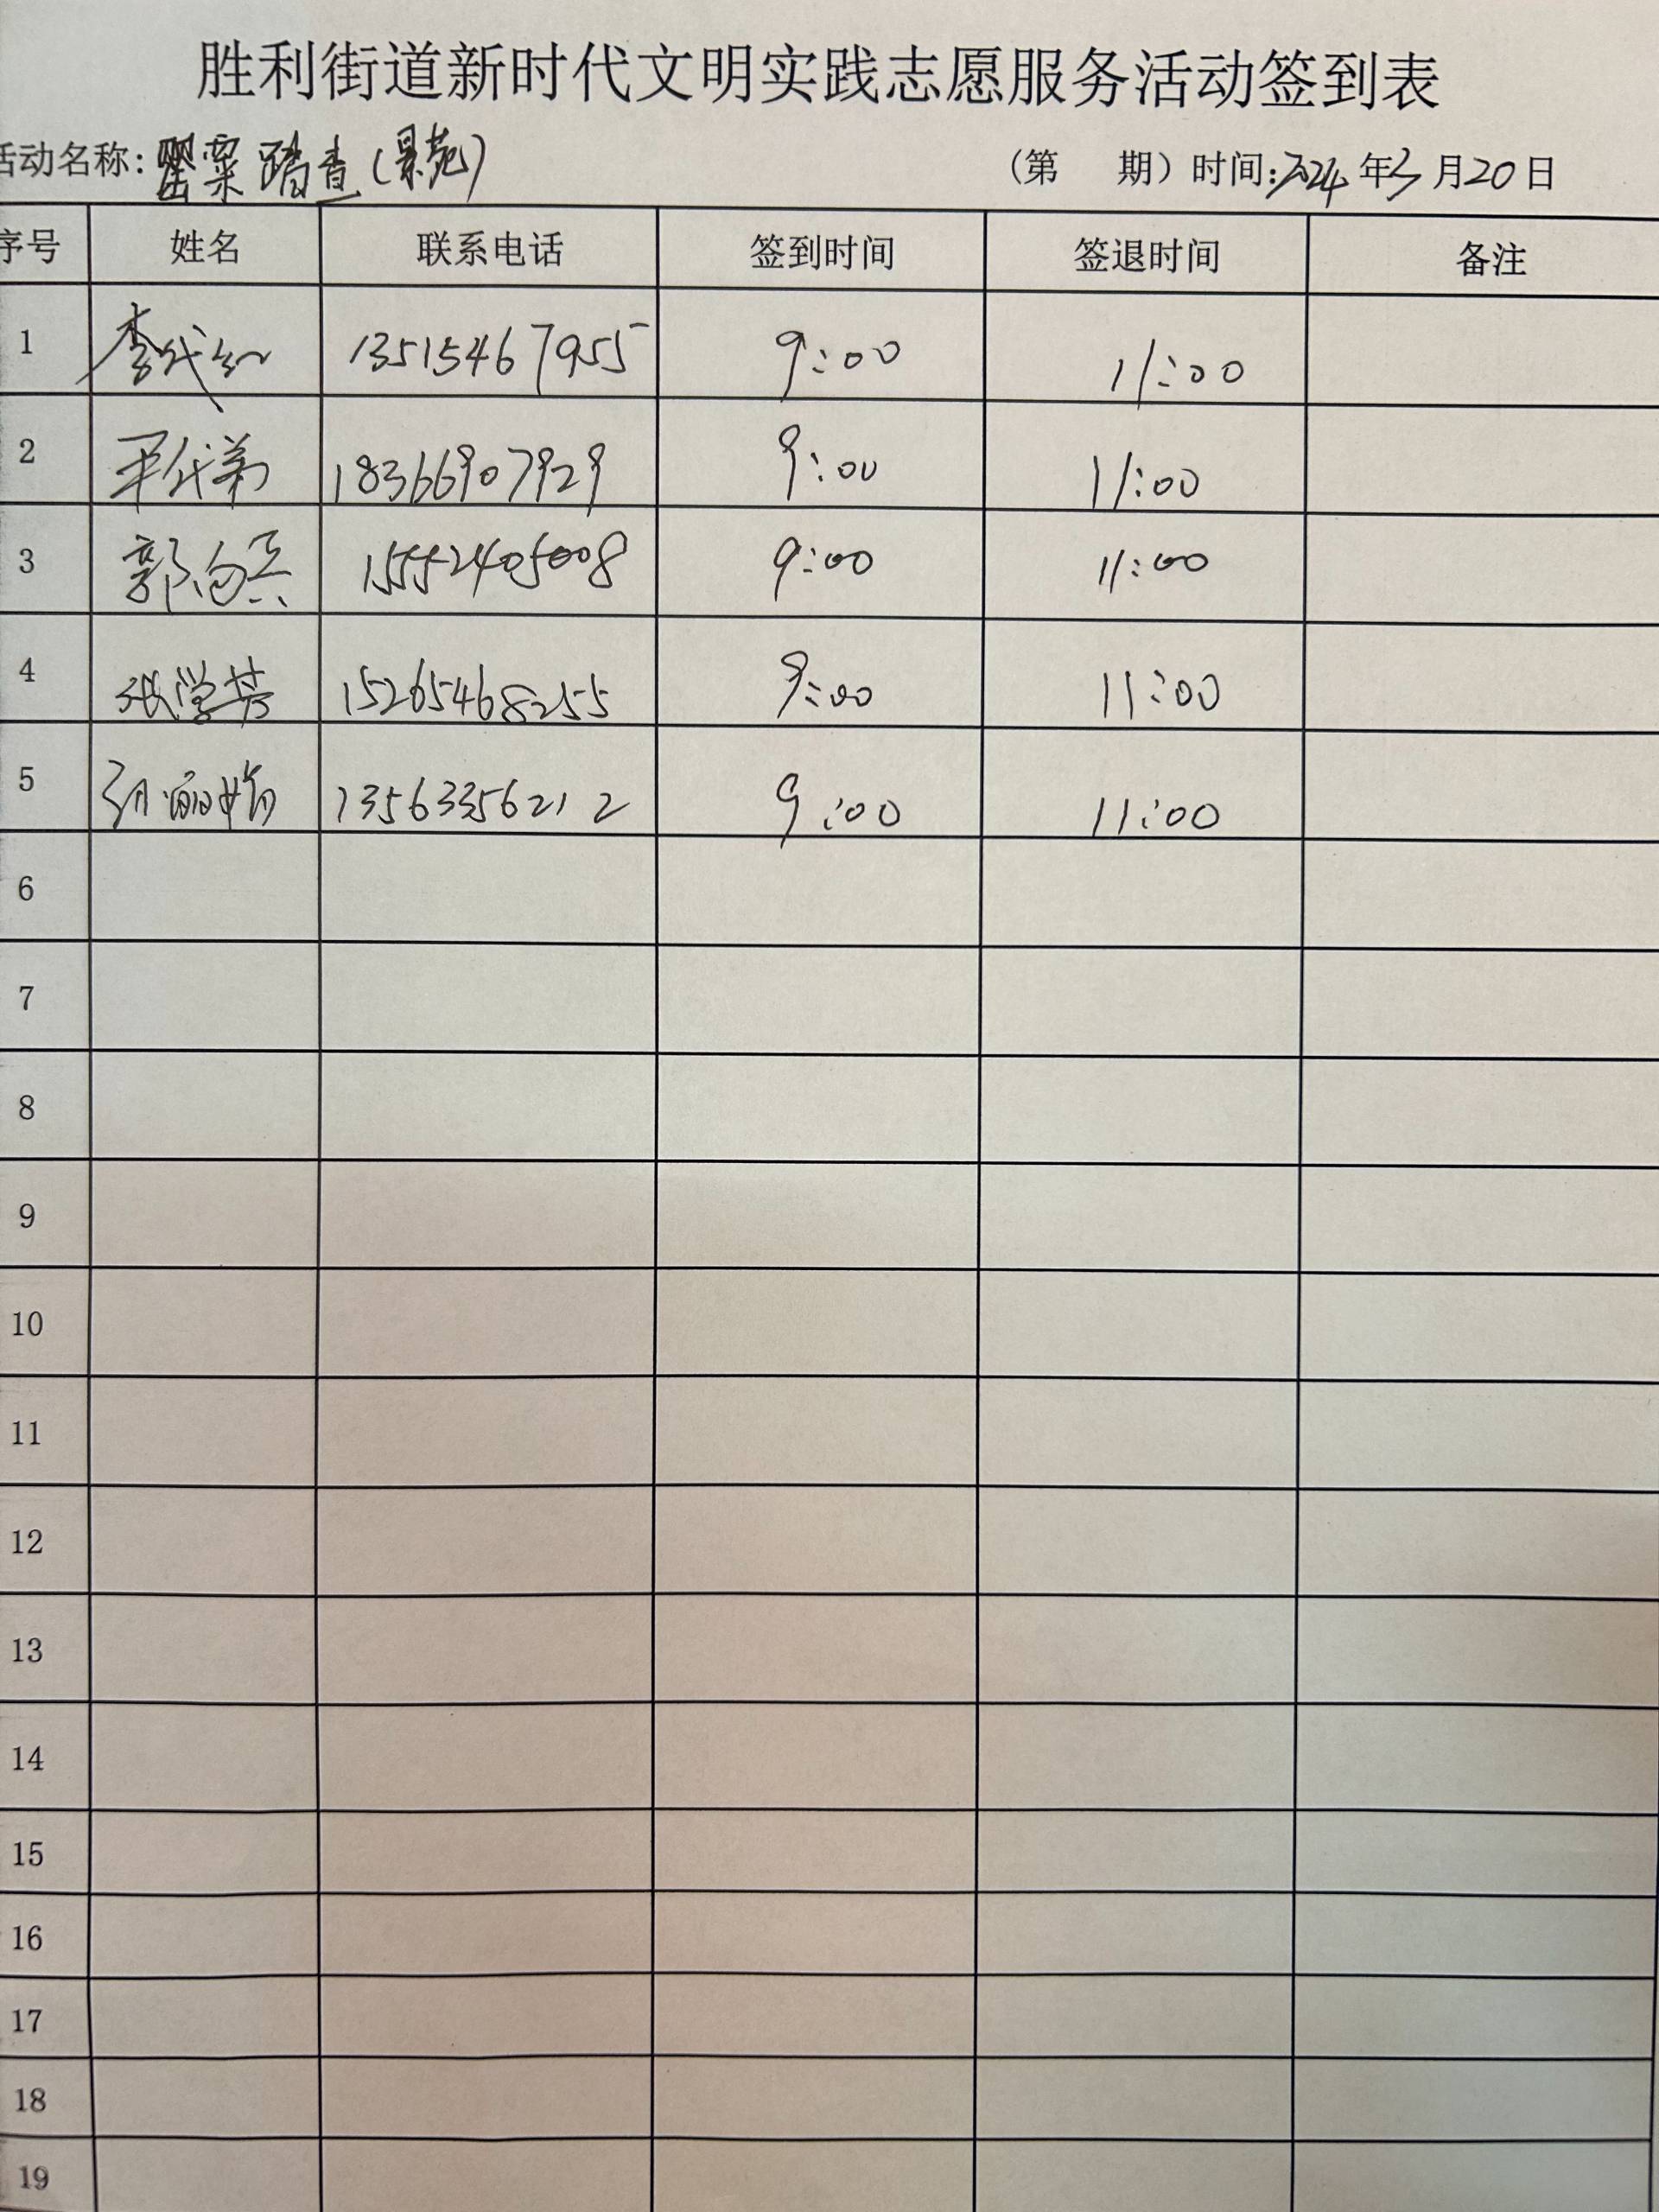 胜利街道新时代文明实践志愿服务活动签到表
活动名称：罂粟踏查(景苑) （第 期）时间：2024年3月20日
序号 姓名 联系电话 签到时间 签退时间 备注
1 李代红 13515467955 9:00 11:00
2 18366907929 9:00 11:00
3 郭向兵 15552405008 9:00 11:00
4 张学芳 15265468255 9:00 11:00
5 13563356212 9:00 11:00
6
7
8
9
10
11
12
13
14
15
16
17
18
19